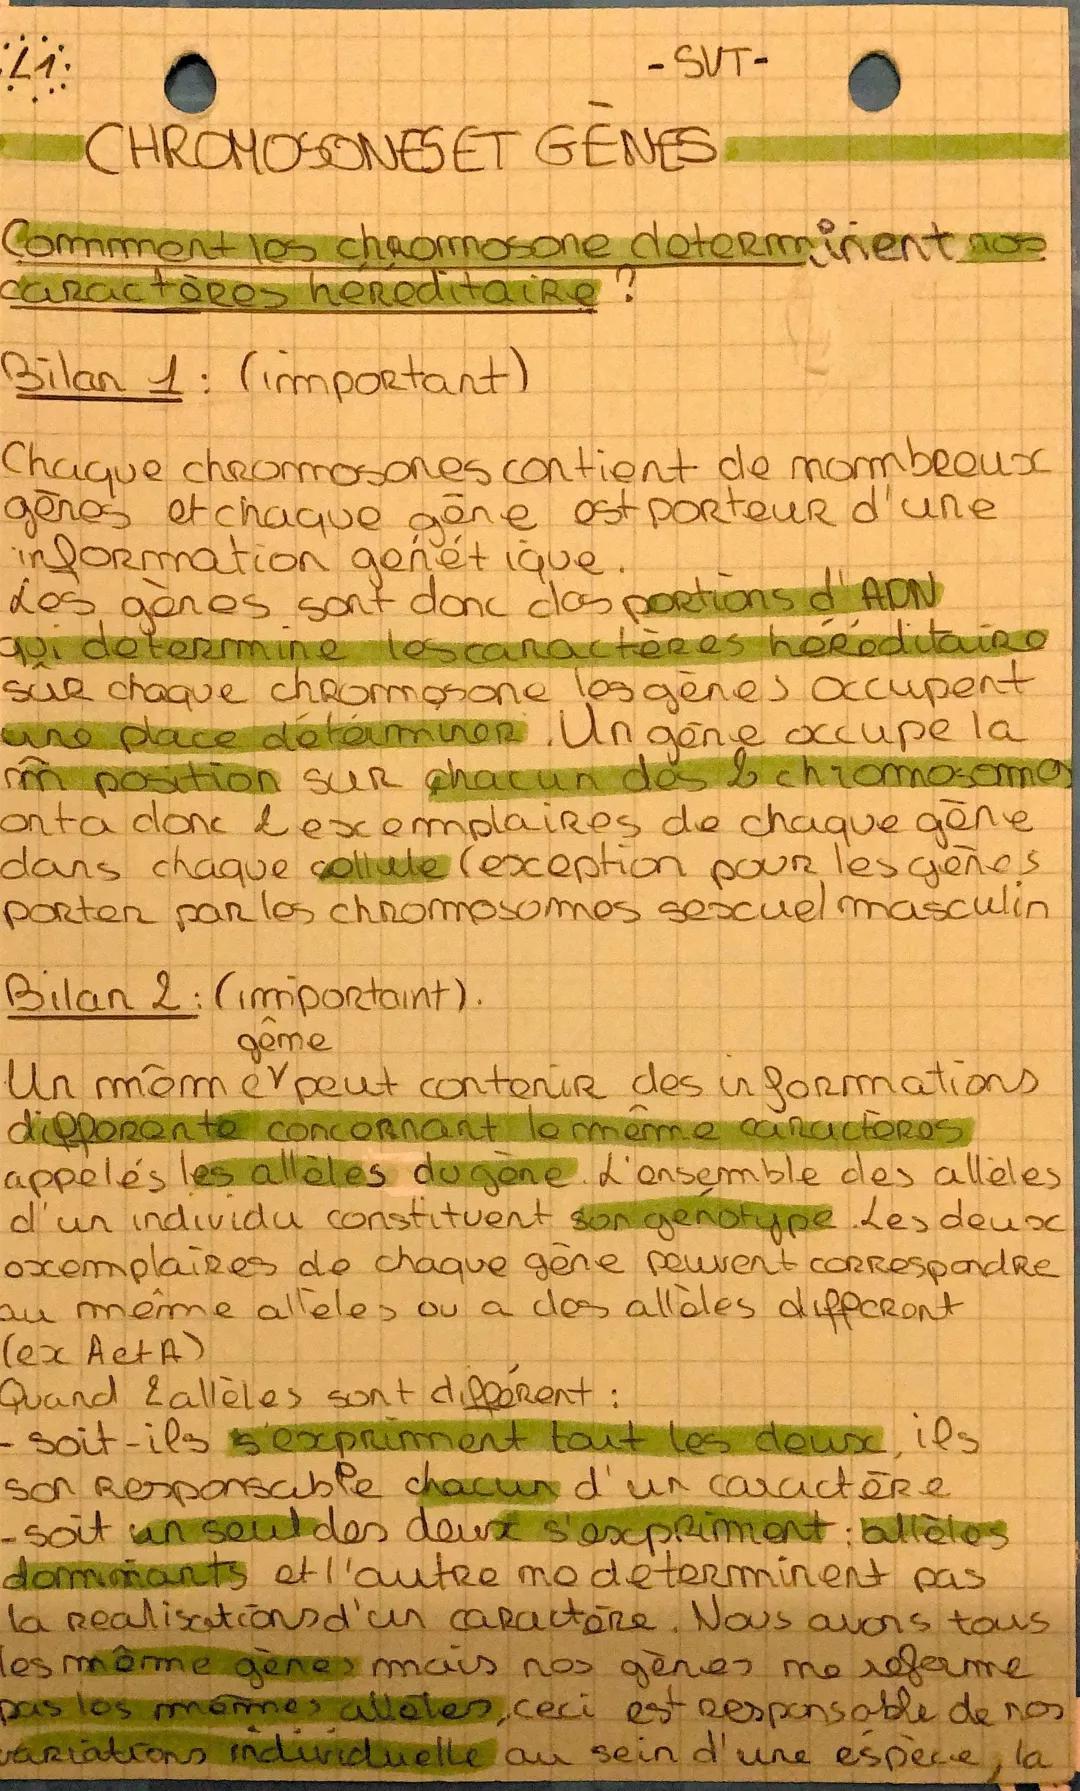 L1:
-SVT-
CHROMOSONES ET GÈNES
Commment les chromosone determinent nos
caractères héréditaire ?
Bilan 1 : (important)
Chaque chromosones contient de nombreux
gènes et chaque gène est porteur d'une
information génétique.
Les gènes sont donc des portions d'ADN
qui determine les caractères héréditaire
sur chaque chromosone les gènes occupent
une place déterminer. Un gène occupe la
m̂ position sur chacun des 2 chromosomes
onta donc 2 excemplaires de chaque gène
dans chaque cellule (exception pour les gènes
porter par les chromosomes sexcuel masculin
Bilan 2 : (importaint).
gème
Un même peut contenir des informations
differente concernant le même caractères
appelés les allèles du gène. L'ensemble des allèles
d'un individu constituent son génotype. Les deux
excemplaires de chaque gène peuvent correspondre
au même allèles ou a des allèles différent
(ex A et A)
Quand 2 allèles sont différent :
- soit-ils s'expriment tout les deux, ils
son responsable chacun d'un caractère
- soit un seul des deux s'expriment : allèles
dominants et l'autre ne determinent pas
la realisations d'un caractère. Nous avons tous
les même gènes mais nos gènes ne referme
pas les mêmes allèles, ceci est responsable de nos
variations individuelle au sein d'une espèce, la